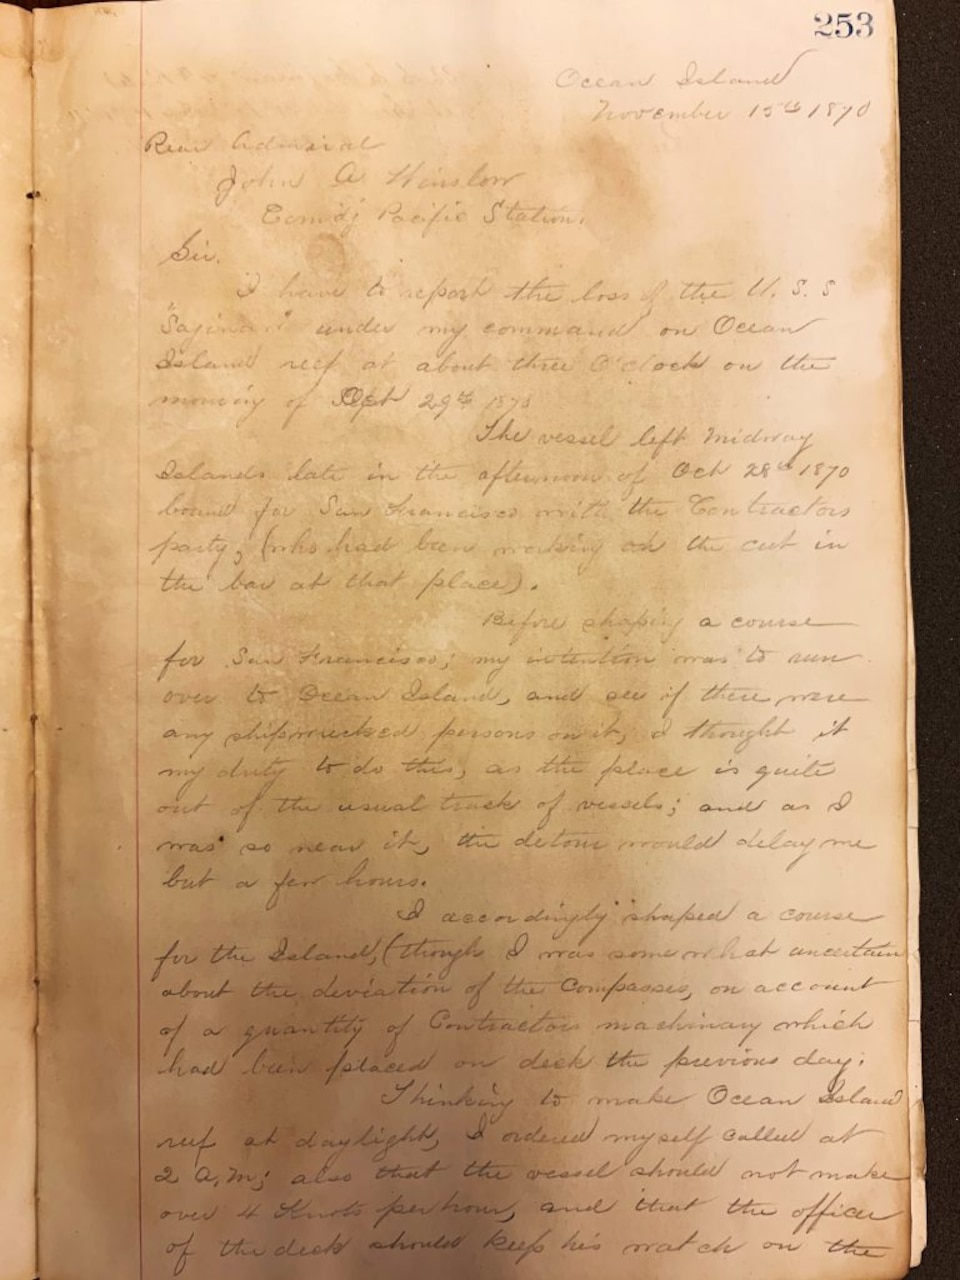 253
Ocean Island
November 15th 1870
Rear Admiral
John A Winslow
Comdg Pacific Station.
Sir.
I have to report the loss of the U. S. S
"Saginaw" under my command on Ocean
Island reef at about three O'clock on the
morning of Oct 29th 1870
The vessel left Midway
Islands late in the afternoon of Oct 28th 1870
bound for San Francisco with the Contractors
party, (who had been working on the cut in
the bar at that place).
Before shaping a course
for San Francisco; my intention was to run
over to Ocean Island, and see if there were
any shipwrecked persons on it, I thought it
my duty to do this, as the place is quite
out of the usual track of vessels; and as I
was so near it, the detour would delay me
but a few hours.
I accordingly shaped a course
for the Island, (though I was somewhat uncertain
about the deviation of the Compasses, on account
of a quantity of Contractors machinary which
had been placed on deck the previous day;
Thinking to make Ocean Island
reef at daylight, I ordered myself called at
2 A.M; also that the vessel should not make
over 4 Knots per hour, and that the officer
of the deck should keep his watch on the